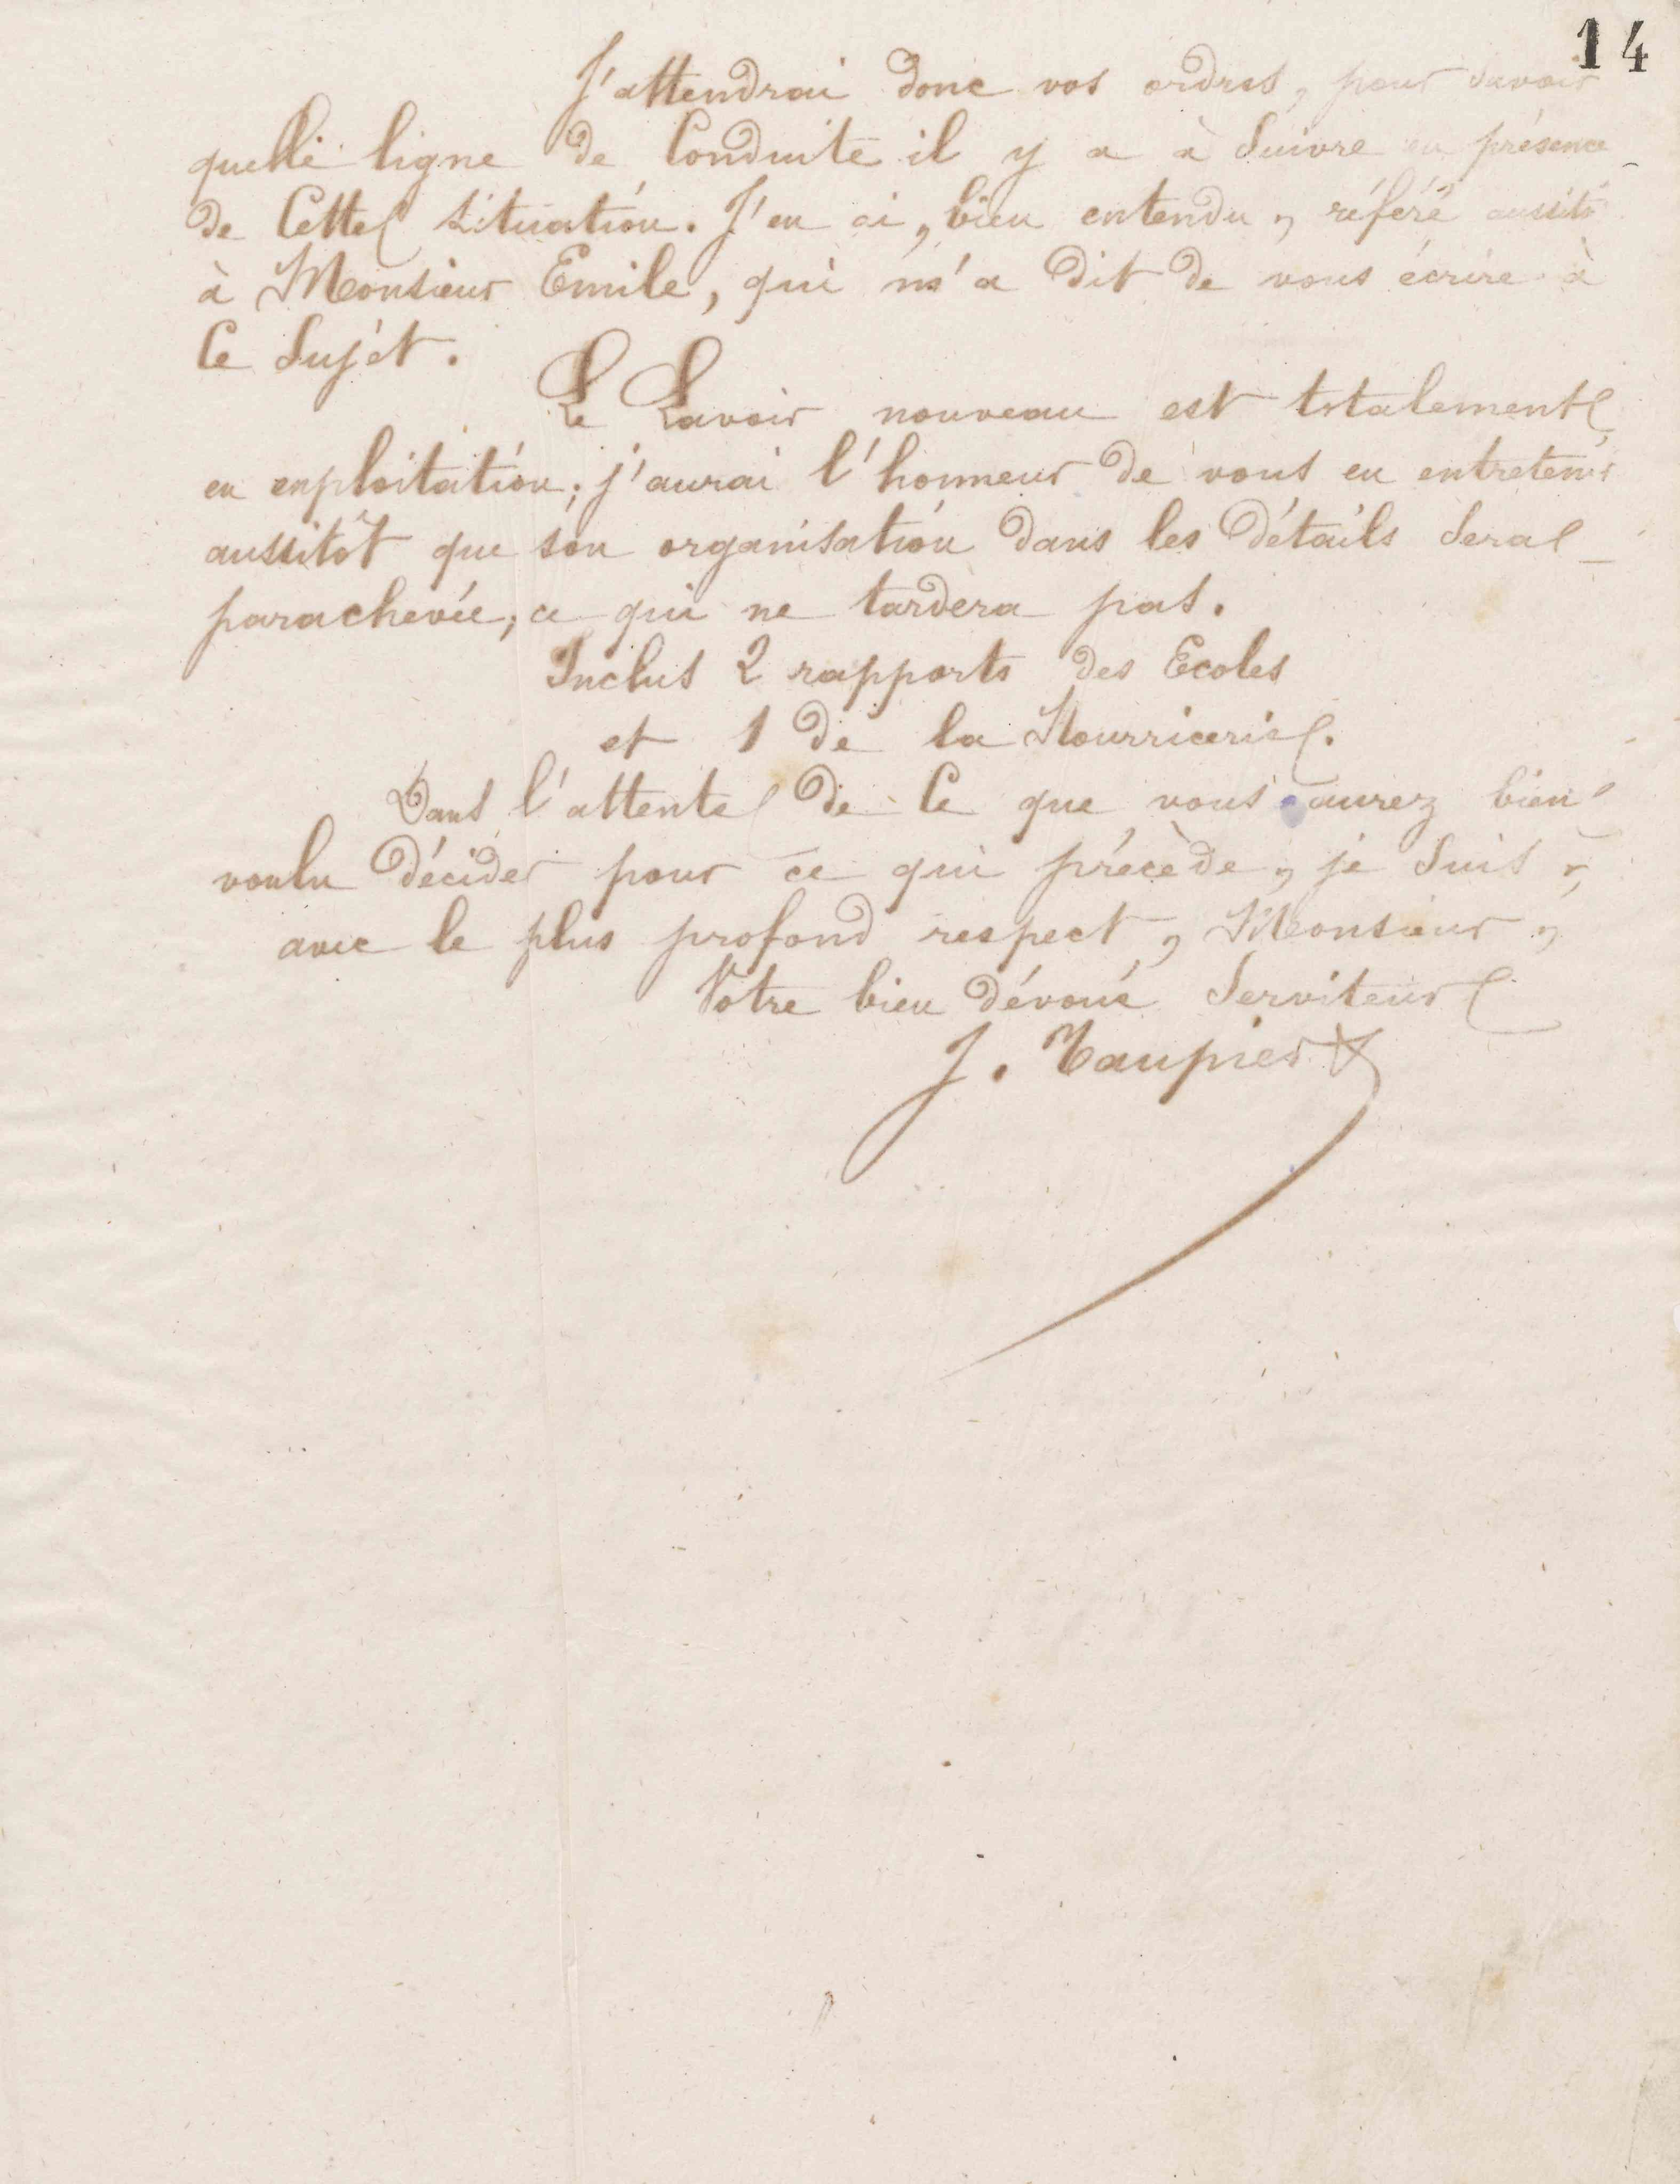 14
J'attendrai donc vos ordres, pour savoir
quelle ligne de Conduite il y a à Suivre en présence
de Cette situation. J'en ai, bien entendu, référé aussitô
à Monsieur Emile, qui m'a dit de vous écrire à
Ce Sujet.
Le Lavoir nouveau est totalement
en exploitation; j'aurai l'honneur de vous en entretenir
aussitôt que son organisation dans les Détails Sera
parachevée, ce qui ne tardera pas.
Inclus 2 rapports des Ecoles
et 1 de la Nourricerie.
Dans l'attente de Ce que vous aurez bien
voulu Décider pour ce qui précède, je Suis,
avec le plus profond respect, Monsieur,
Votre bien dévoué Serviteur
J. Taupier